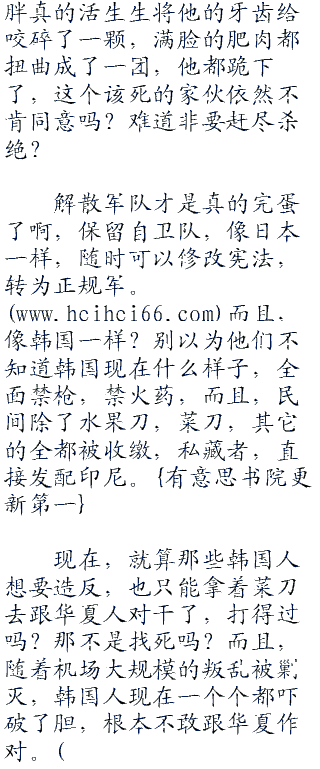 胖真的活生生将他的牙齿给
咬碎了一颗，满脸的肥肉都
扭曲成了一团，他都跪下
了，这个该死的家伙依然不
肯同意吗？难道非要赶尽杀
绝？
解散军队才是真的完蛋
了啊，保留自卫队，像日本
一样，随时可以修改宪法，
转为正规军。
(www.hcihci66.com)而且，
像韩国一样？别以为他们不
知道韩国现在什么样子，全
面禁枪，禁火药，而且，民
间除了水果刀，菜刀，其它
的全都被收缴，私藏者，直
接发配印尼。{有意思书院更
新第一}
现在，就算那些韩国人
想要造反，也只能拿着菜刀
去跟华夏人对干了，打得过
吗？那不是找死吗？而且，
随着机场大规模的叛乱被剿
灭，韩国人现在一个个都吓
破了胆，根本不敢跟华夏作
对。(